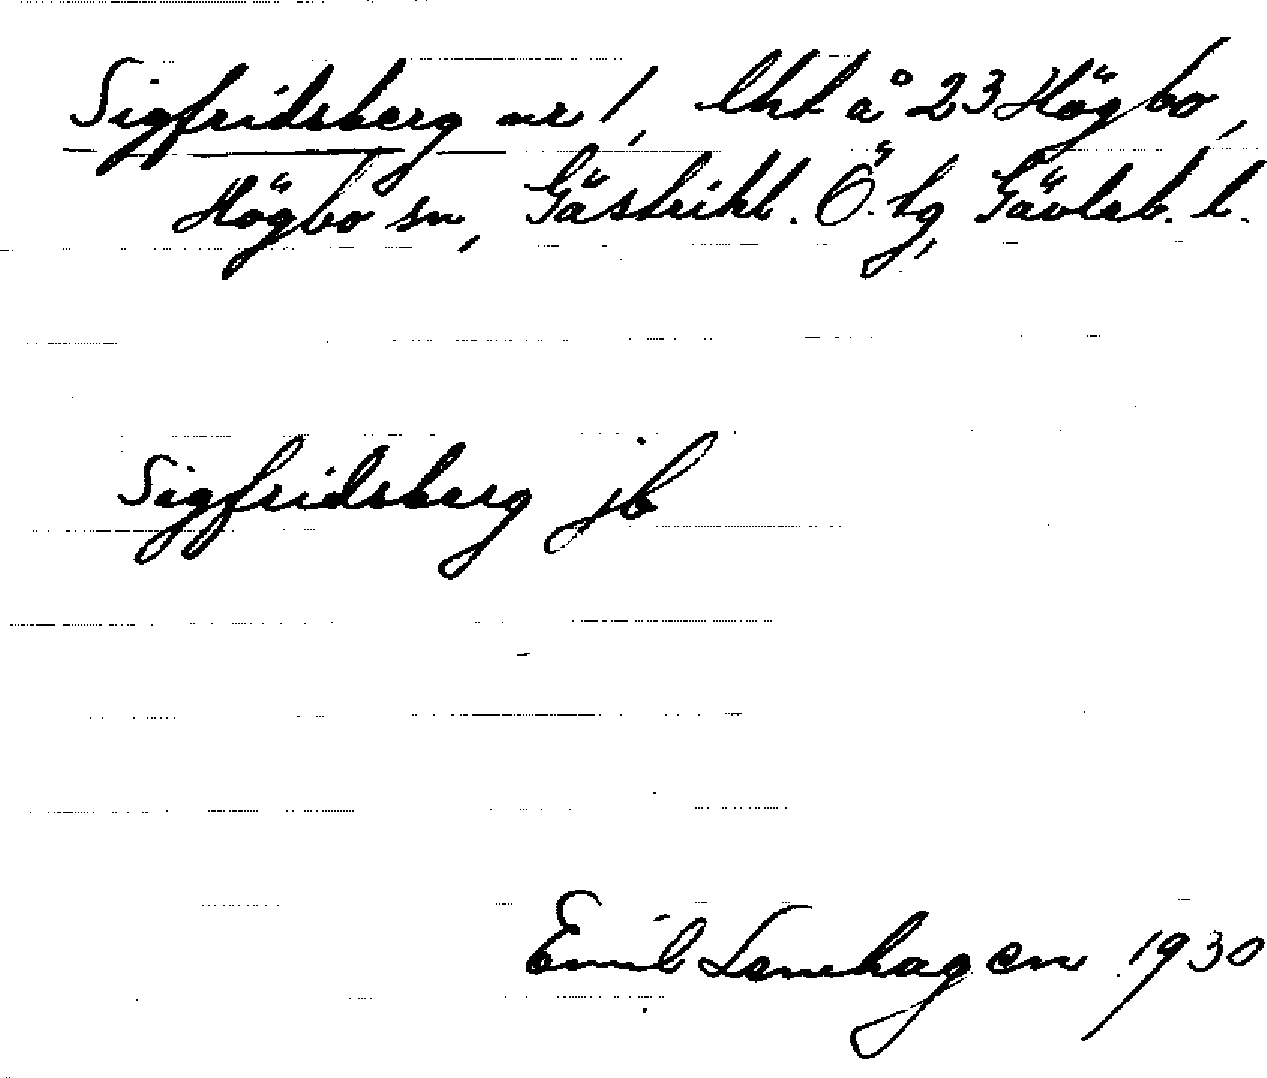 Sigfridsberg nr 1, lht å 23 Högbo,
Högbo sn, Gästrikl. Ö. tg, Gävleb. l.
Sigfridsberg jb
Emil Lenhagen 1930